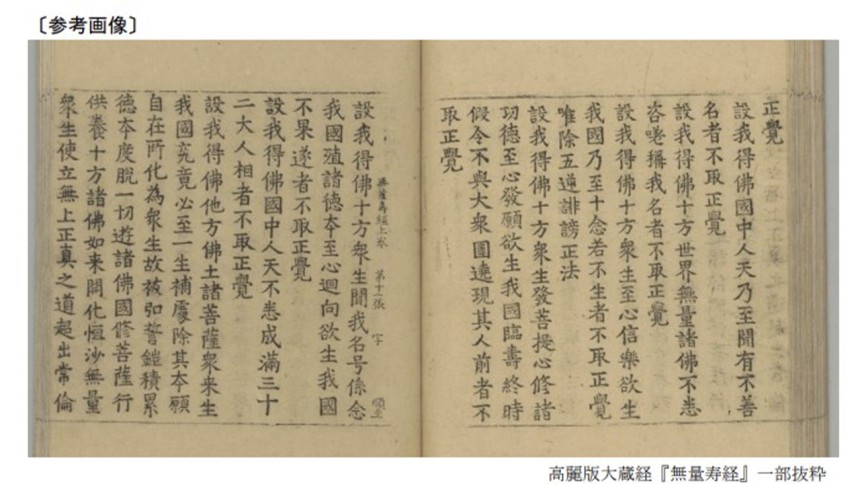 〔参考画像〕
正覺
設我得佛國中人天乃至聞有不善
名者不取正覺
設我得佛十方世界無量諸佛不悉
咨嗟稱我名者不取正覺
設我得佛十方衆生至心信樂欲生
我國乃至十念若不生者不取正覺
唯除五逆誹謗正法
設我得佛十方衆生發菩提心修諸
功德至心發願欲生我國臨壽終時
假令不與大衆圍遶現其人前者不
取正覺
無量壽經上卷 第十一張 字
設我得佛十方衆生聞我名号係念
我國殖諸德夲至心迴向欲生我國
不果遂者不取正覺
設我得佛國中人天不悉成滿三十
二大人相者不取正覺
設我得佛他方佛土諸菩薩衆来生
我國究竟必至一生補處除其夲願
自在所化為衆生故被弘誓鎧積累
德夲度脫一切遊諸佛國修菩薩行
供養十方諸佛如来開化恒沙無量
衆生使立無上正真之道超出常倫
高麗版大蔵経『無量寿経』一部抜粋